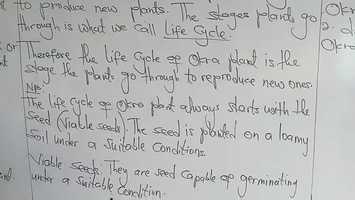 to produce new plants. The stages plants go
through is what we call Life Cycle.
Therefore the life cycle of Okra plant is the
stage the plants go through to reproduce new ones.
NB:
The life cycle of Okro plant always starts with the
Seed (Viable seeds). The seed is planted on a loamy
Soil under a Suitable Conditions.
Viable Seeds: They are seed capable of germinating
under a Suitable Condition.
Okr
2. d
Okro